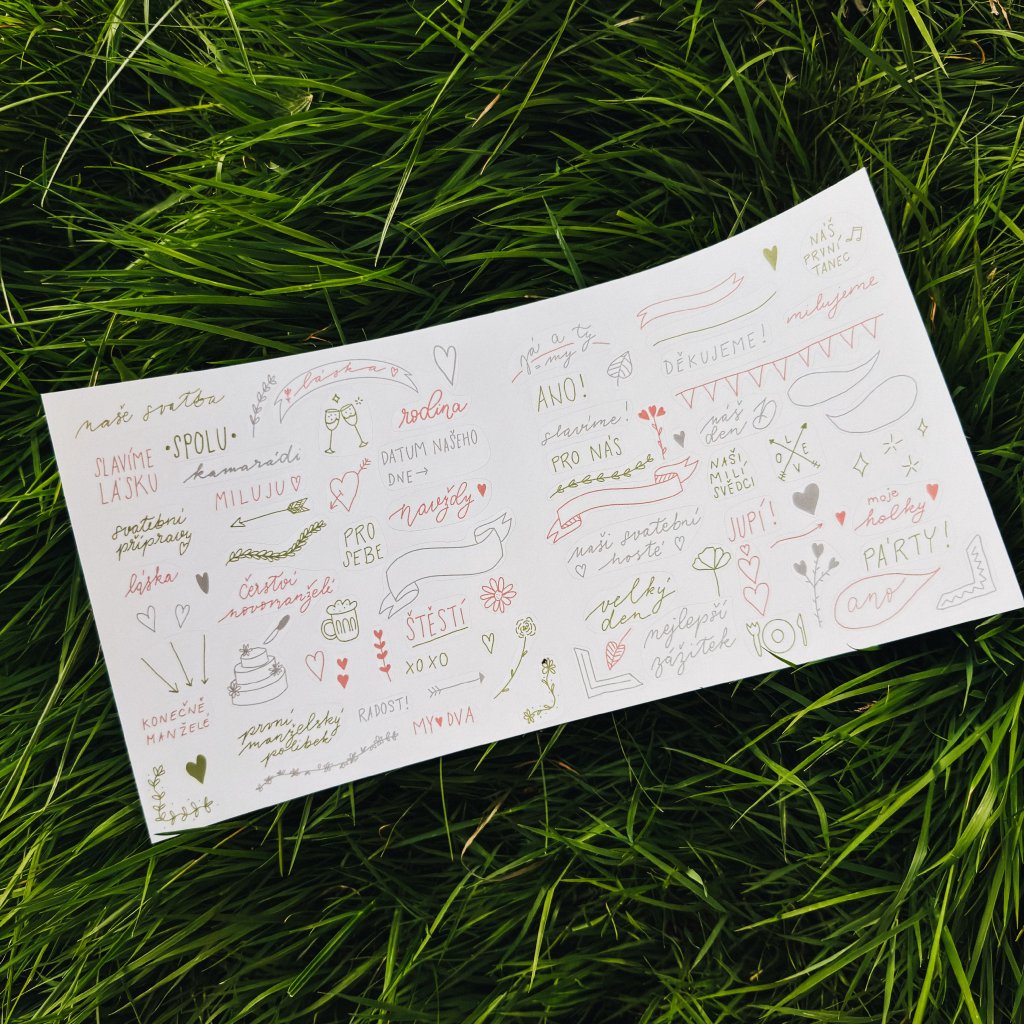 naše svatba
•SPOLU•
láska
rodina
SLAVÍME
LÁSKU
kamarádi
DATUM NAŠEHO
DNE→
MILUJU
navždy
svatební
přípravy
PRO
SEBE
láska
čerství
novomanželé
ŠTĚSTÍ
XOXO
KONEČNĚ
MANŽELÉ
první
manželský
polibek
RADOST!
MY♥DVA
já a ty
= my
ANO!
DĚKUJEME!
milujeme
NÁŠ
PRVNÍ
TANEC
slavíme!
PRO NÁS
náš
den D
NAŠI
MILÍ
SVĚDCI
LOVE
naši svatební
hosté
JUPÍ!
moje
holky
PÁRTY!
velký
den
nejlepší
zážitek
ano